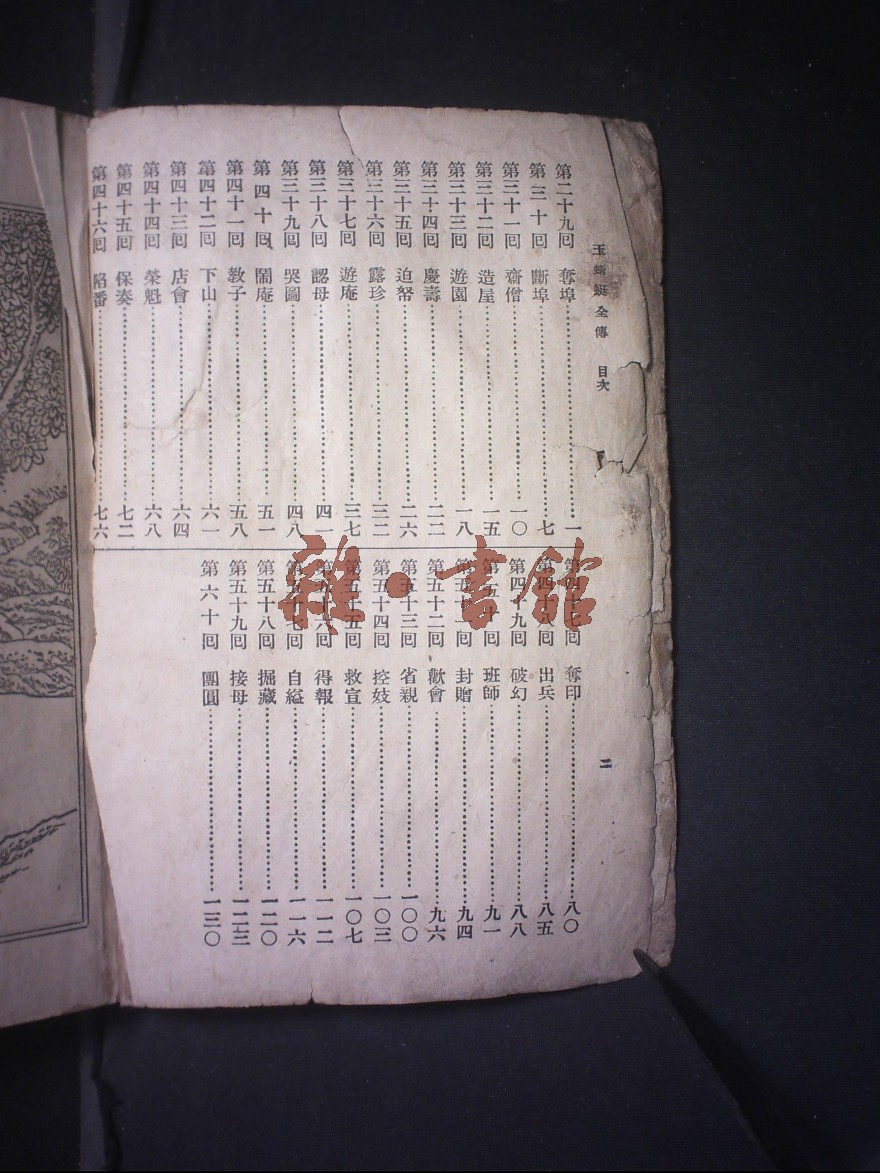 玉蜻蜓全傳　目次
第二十九回　奪埠…………一
第三十回　斷埠…………七
第三十一回　齋僧…………一〇
第三十二回　造屋…………一五
第三十三回　遊園…………一八
第三十四回　慶壽…………二二
第三十五回　迫帑…………二六
第三十六回　露珍…………三二
第三十七回　遊庵…………三七
第三十八回　認母…………四一
第三十九回　哭圖…………四八
第四十回　鬧庵…………五一
第四十一回　教子…………五八
第四十二回　下山…………六一
第四十三回　店會…………六四
第四十四回　榮魁…………六八
第四十五回　保奏…………七二
第四十六回　陷番…………七六
第四十七回　奪印…………八〇
第四十八回　出兵…………八五
第四十九回　破幻…………八八
第五十回　班師…………九一
第五十一回　封贈…………九四
第五十二回　歡會…………九六
第五十三回　省親…………一〇〇
第五十四回　控妓…………一〇三
第五十五回　救宣…………一〇七
第五十六回　得報…………一一二
第五十七回　自縊…………一一六
第五十八回　掘藏…………一二〇
第五十九回　接母…………一二三
第六十回　團圓…………一三〇
二
雜·書館